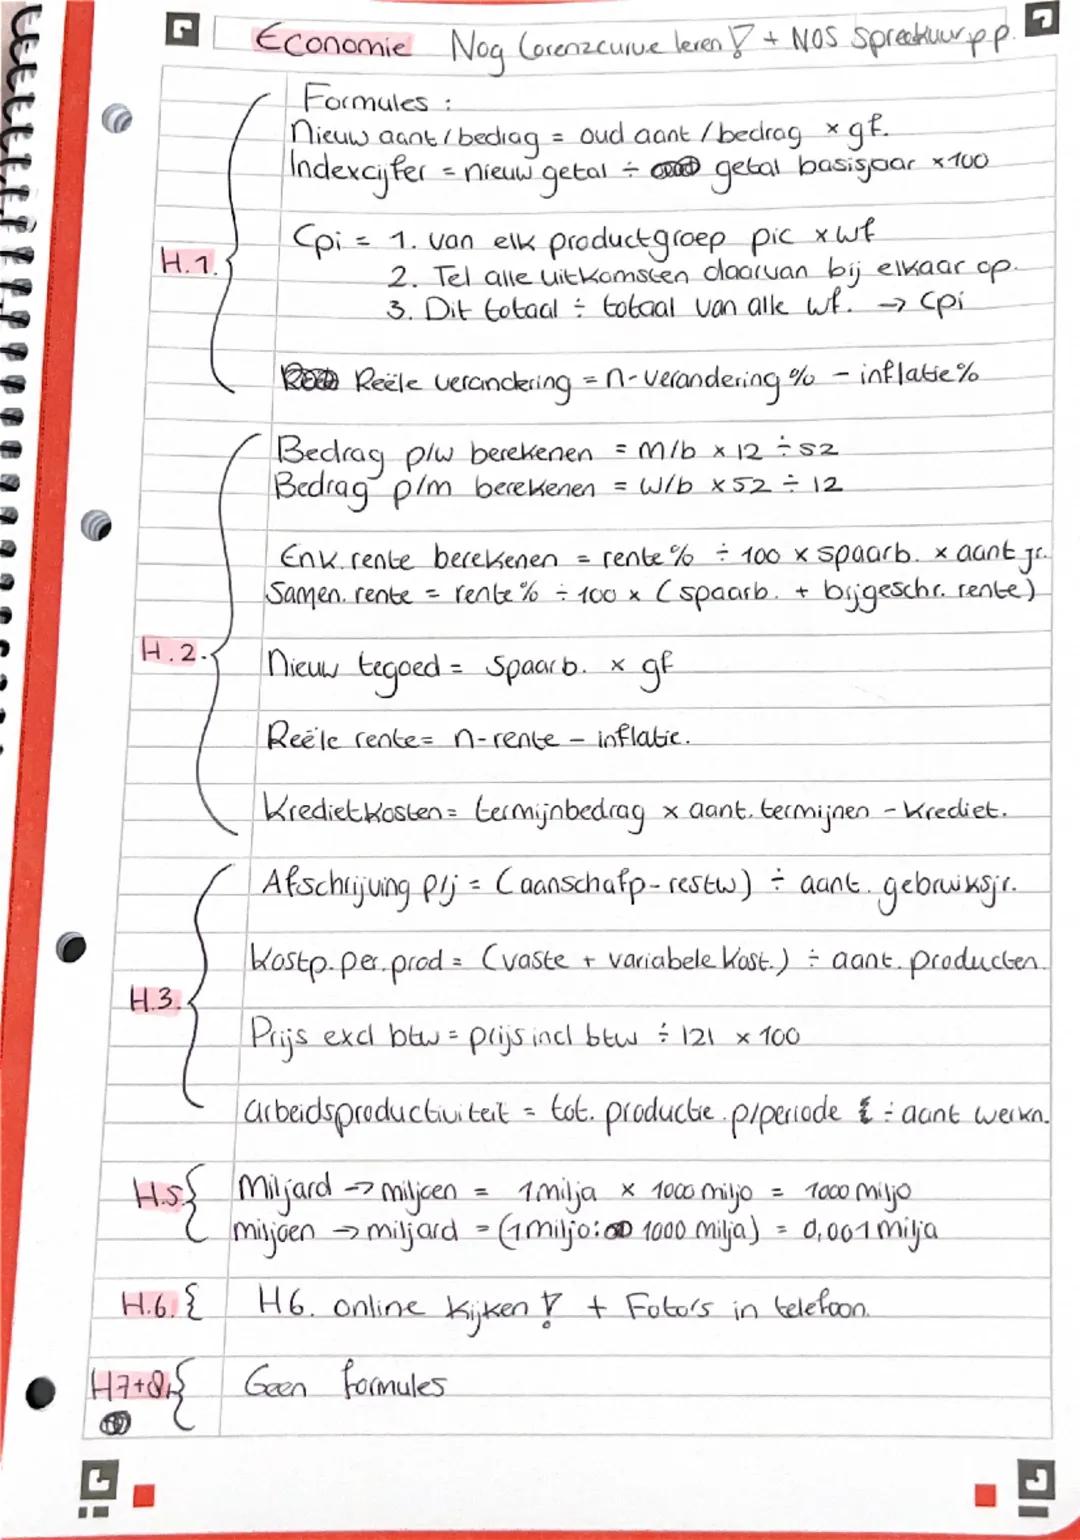 Economie Nog Lorenzcurve leren! + NOS Spreekuur p.p.
Formules :
Nieuw aant / bedrag = oud aant / bedrag x gf.
Indexcijfer = nieuw getal ÷ getal basisjaar x100
H.1.
Cpi = 1. van elk productgroep pic x wf
2. Tel alle uitkomsten daarvan bij elkaar op.
3. Dit totaal ÷ totaal van alle wf. → cpi
Reële verandering = n-verandering % - inflatie %
Bedrag p/w berekenen = m/b x 12 ÷ 52
Bedrag p/m berekenen = w/b x 52 ÷ 12
Enk. rente berekenen = rente % ÷ 100 x spaarb. x aant jr.
Samen. rente = rente % ÷ 100 x (spaarb. + bijgeschr. rente)
H.2.
Nieuw tegoed = Spaarb. x gf
Reële rente = n-rente - inflatie.
Kredietkosten = termijnbedrag x aant. termijnen - krediet.
Afschrijving p/j = (aanschafp - restw) ÷ aant. gebruiksjr.
Kostp. per. prod = (vaste + variabele kost.) ÷ aant. producten.
H.3.
Prijs excl btw = prijs incl btw ÷ 121 x 100
arbeidsproductiviteit = tot. productie p/periode ÷ aant werkn.
H.5 Miljard → miljoen = 1 milja x 1000 miljo = 1000 miljo
miljoen → miljard = (1 miljo : 1000 milja) = 0,001 milja
H.6. H6. online kijken! + Foto's in telefoon.
H7+8 Geen formules